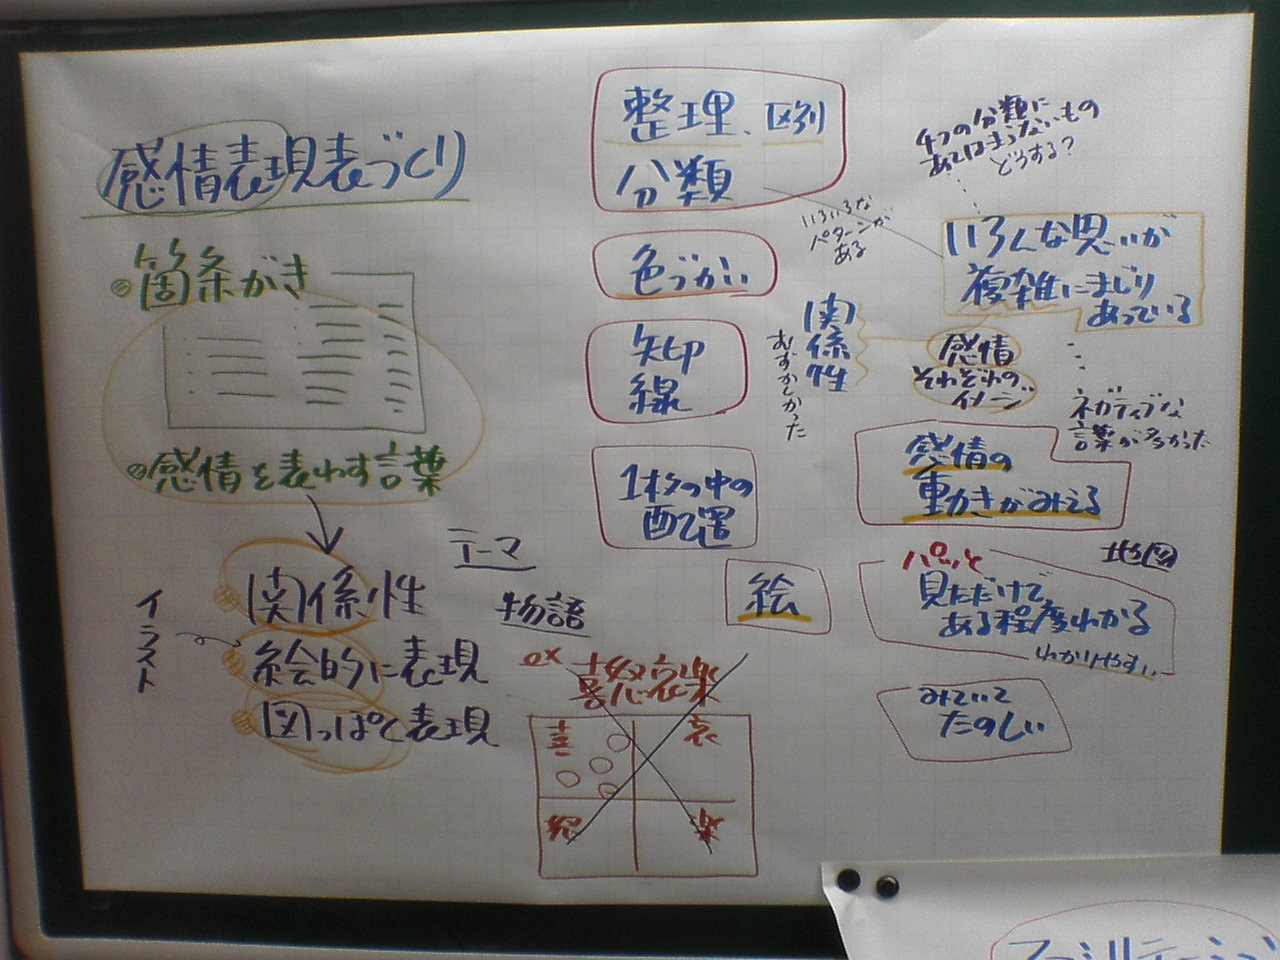 感情表現表づくり
箇条がき
感情を表わす言葉
関係性
絵的に表現
図っぽく表現
イラスト
テーマ
物語
喜怒哀楽
喜
哀
怒
楽
整理、区別
分類
色づかい
矢印
線
1枚の中の
配置
絵
4つの分類に
あてはまらないもの
どうする?
いろいろな
パターンが
ある
いろんな思いが
複雑にまじり
あっている
関係性
むずかしかった
感情
それぞれの
イメージ
ネガティブな
言葉が多かった
感情の
動きがみえる
地図
パッと
見ただけで
ある程度わかる
わかりやすい
みていて
たのしい